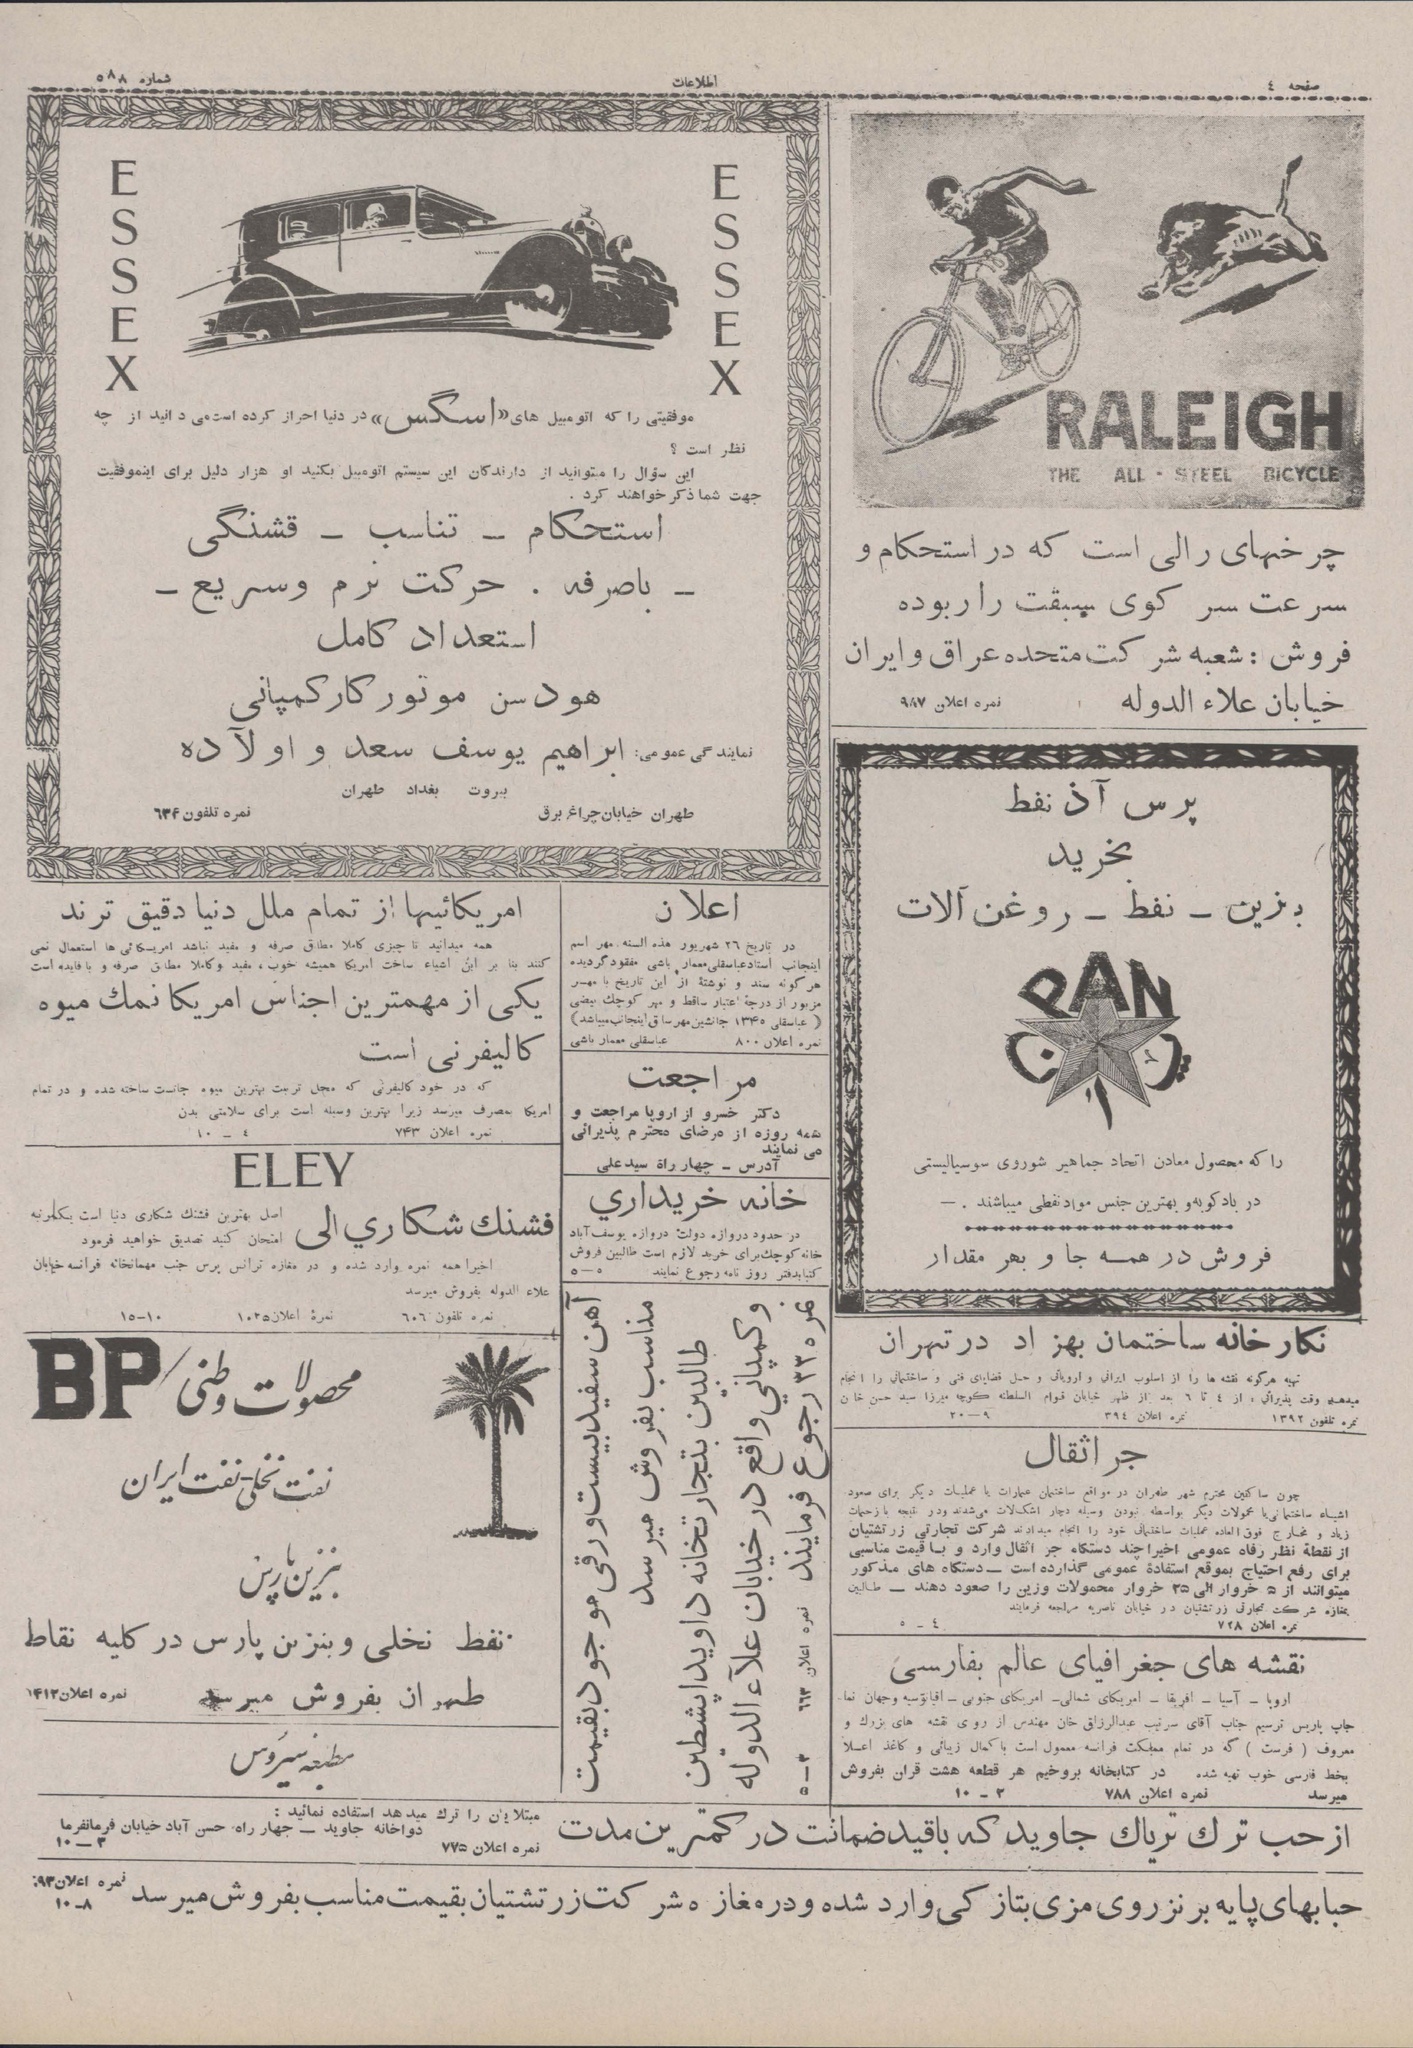 صفحه ٤
اطلاعات
شماره ٥٨٨
RALEIGH
THE ALL-STEEL BICYCLE
چرخهای رالی است که در استحکام و
سرعت سر کوی سبقت را ربوده
فروش : شعبه شرکت متحده عراق و ایران
خیابان علاء الدوله
نمره اعلان ٩٨٧
ESSEX
ESSEX
موفقیتی را که اتومبیل های «اسگس» در دنیا احراز کرده است می دانید از چه
نظر است ؟
این سؤال را میتوانید از دارندگان این سیستم اتومبیل بکنید او هزار دلیل برای اینموفقیت
جهت شما ذکر خواهند کرد .
استحکام – تناسب – قشنگی
– باصرفه . حرکت نرم وسریع –
استعداد کامل
هودسن موتور کار کمپانی
نمایندگی عمومی: ابراهیم یوسف سعد و اولاده
بیروت بغداد طهران
طهران خیابان چراغ برق
نمره تلفون ٦٣۴
پرس آذ نفط
بخرید
بنزین – نفط – روغن آلات
PAN
را که محصول معادن اتحاد جماهیر شوروی سوسیالیستی
در بادکوبه و بهترین جنس مواد نفطی میباشند . –
فروش در همه جا و بهر مقدار
نکارخانه ساختمان بهزاد در تهران
تهیه هرگونه نقشه ها را از اسلوب ایرانی و اروپائی و حل قضایای فنی و ساختمانی را انجام
میدهد وقت پذیرائی از ٤ تا ٦ بعد از ظهر خیابان قوام السلطنه کوچه میرزا سید حسن خان
نمره تلفون ١٣٩٢ نمره اعلان ٣٩٤ ٩–٢٠
جر اثقال
چون ساکنین محترم شهر طهران در مواقع ساختمان عمارات یا عملیات دیگر برای صعود
اشیاء ساختمانی یا محمولات دیگر بواسطه نبودن وسیله دچار اشکالات می‌شدند ودر نتیجه با زحمات
زیاد و مخارج فوق العاده عملیات ساختمانی خود را انجام میدادند شرکت تجارتی زرتشتیان
از نقطهٔ نظر رفاه عمومی اخیرا چند دستگاه جر اثقال وارد و با قیمت مناسبی
برای رفع احتیاج بموقع استفادهٔ عمومی گذارده است – دستگاه های مذکور
میتوانند از ٥ خروار الی ٢٥ خروار محمولات وزین را صعود دهند – طالبین
بمغازه شرکت تجارتی زرتشتیان در خیابان ناصریه مراجعه فرمایند
نمره اعلان ٧٢٨ ٤ – ٥
نقشه های جغرافیای عالم بفارسی
اروپا – آسیا – افریقا – امریکای شمالی – امریکای جنوبی – اقیانوسیه وجهان نما.
چاپ پاریس ترسیم جناب آقای سرتیپ عبدالرزاق خان مهندس از روی نقشه های بزرك و
معروف ( فرست ) که در تمام مملکت فرانسه معمول است با کمال زیبائی و کاغذ اعلا
بخط فارسی خوب تهیه شده در کتابخانه بروخیم هر قطعه هشت قران بفروش
میرسد نمره اعلان ٧٨٨ ٣ – ١٠
اعلان
در تاریخ ٢٦ شهریور هذه السنه مهر اسم
اینجانب استاد عباسقلی معمار باشی مفقود گردیده
هرگونه سند و نوشتهٔ از این تاریخ با مهر
مزبور از درجهٔ اعتبار ساقط و مهر کوچك بیضی
( عباسقلی ١٣٤٥ جانشین مهر سابق اینجانب میباشد)
نمره اعلان ٨٠٠ عباسقلی معمار باشی
مراجعت
دکتر خسرو از اروپا مراجعت و
همه روزه از مرضای محترم پذیرائی
می نمایند
آدرس – چهار راه سید علی
خانه خریداری
در حدود دروازه دولت دروازه یوسف آباد
خانه کوچك برای خرید لازم است طالبین فروش
کتبا بدفتر روز نامه رجوع نمایند ٥–٥
آهن سفید بیست ورقی موجود بقیمت
مناسب بفروش میرسد
طالبین بتجارتخانه داوید اپشطین
وکمپانی واقع در خیابان علاء الدوله
نمره ٣٣٠ رجوع فرمایند نمره اعلان ٦٦٣ ٣–٥
امریکائیها از تمام ملل دنیا دقیق ترند
همه میدانید تا چیزی کاملا مطابق صرفه و مفید نباشد امریکائی ها استعمال نمی
کنند بنا بر این اشیاء ساخت امریکا همیشه خوب، مفید وکاملا مطابق صرفه و با فایده است
یکی از مهمترین اجناس امریکا نمك میوه
کالیفرنی است
که در خود کالیفرنی که محل تربیت بهترین میوه جانست ساخته شده و در تمام
امریکا بمصرف میرسد زیرا بهترین وسیله است برای سلامتی بدن
نمره اعلان ٧٤٣ ٤ – ١٠
ELEY
فشنك شکاری الی
اصل بهترین فشنك شکاری دنیا است یکمرتبه
امتحان کنید تصدیق خواهید فرمود
اخیرا همه نمره وارد شده و در مغازه ترانس پرس جنب مهمانخانه فرانسه خیابان
علاء الدوله بفروش میرسد
نمره تلفون ٦٠٦ نمرهٔ اعلان ١٠٢٥ ١٠–١٥
BP
محصولات وطنی
نفت نخلی - نفت ایران
بنزین پارس
نفط نخلی وبنزین پارس در کلیه نقاط
طهران بفروش میرسد
نمره اعلان ١٤١٢
مطبعه سیروس
از حب ترك تریاك جاوید که باقید ضمانت در کمترین مدت
مبتلایان را ترك میدهد استفاده نمائید :
دواخانه جاوید – چهار راه حسن آباد خیابان فرمانفرما
نمره اعلان ٧٧٥ ٣–١٠
حبابهای پایه برنز روی میزی بتازکی وارد شده ودر مغازه شرکت زرتشتیان بقیمت مناسب بفروش میرسد
نمره اعلان ٦٩٣
٨–١٠